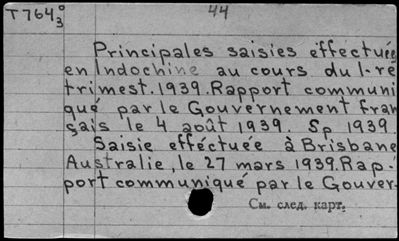 T764 0/3 44
Principales saisies effectuées
en Indochine au cours du 1-re
trimest. 1939. Rapport communi
qué par le Gouvernement fran
sais le 4 août 1939. Sp 1939.
Saisie efféctuée à Brisbane
Australie, le 27 mars 1939. Rap-
port communiqué par le Gouver-
См. след. карт.